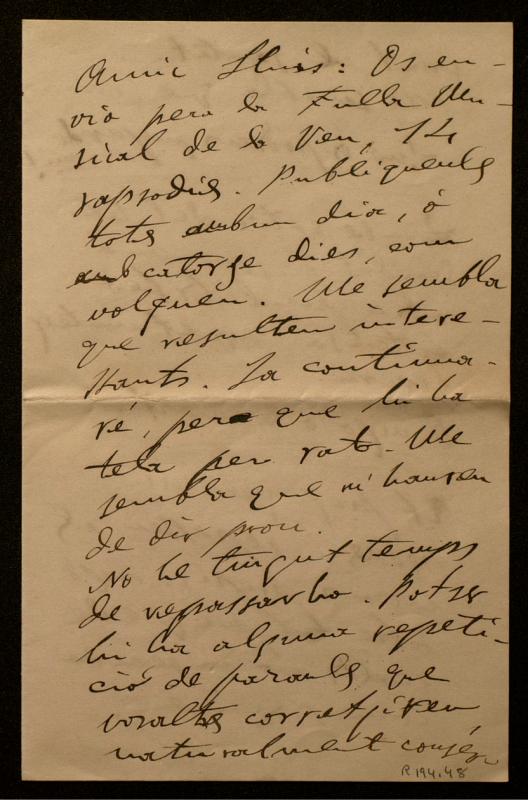 Amic Lluis: Os en-
vio pera la Fulla Mu-
sical de la Veu, 14
rapsodies. Publiquenles
totes en un dia, ó
en catorze dies, com
volguen. Me sembla
que resulten intere-
ssants. La continua-
ré, perque hi ha
tela per rato. Me
sembla que n'hauren
de dir prou.
No he tingut temps
de repassarho. Potser
hi ha alguna repeti-
ció de paraules que
vosaltres corretjiren
naturalment
R 194.48